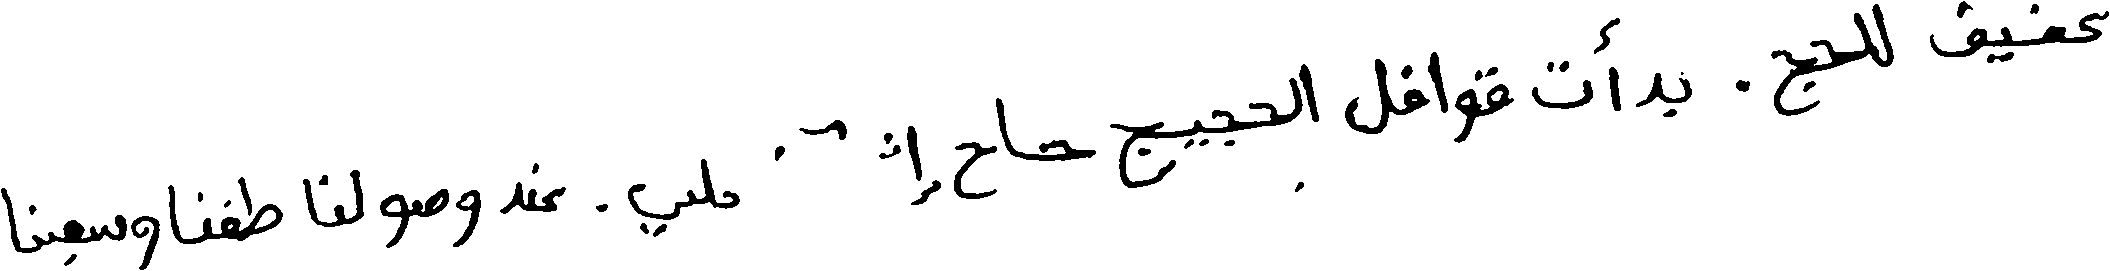 عفيف للحج . بدأت قوافل الحجيج حاج إثر . ملبي . عند وصولنا طفنا وسعينا